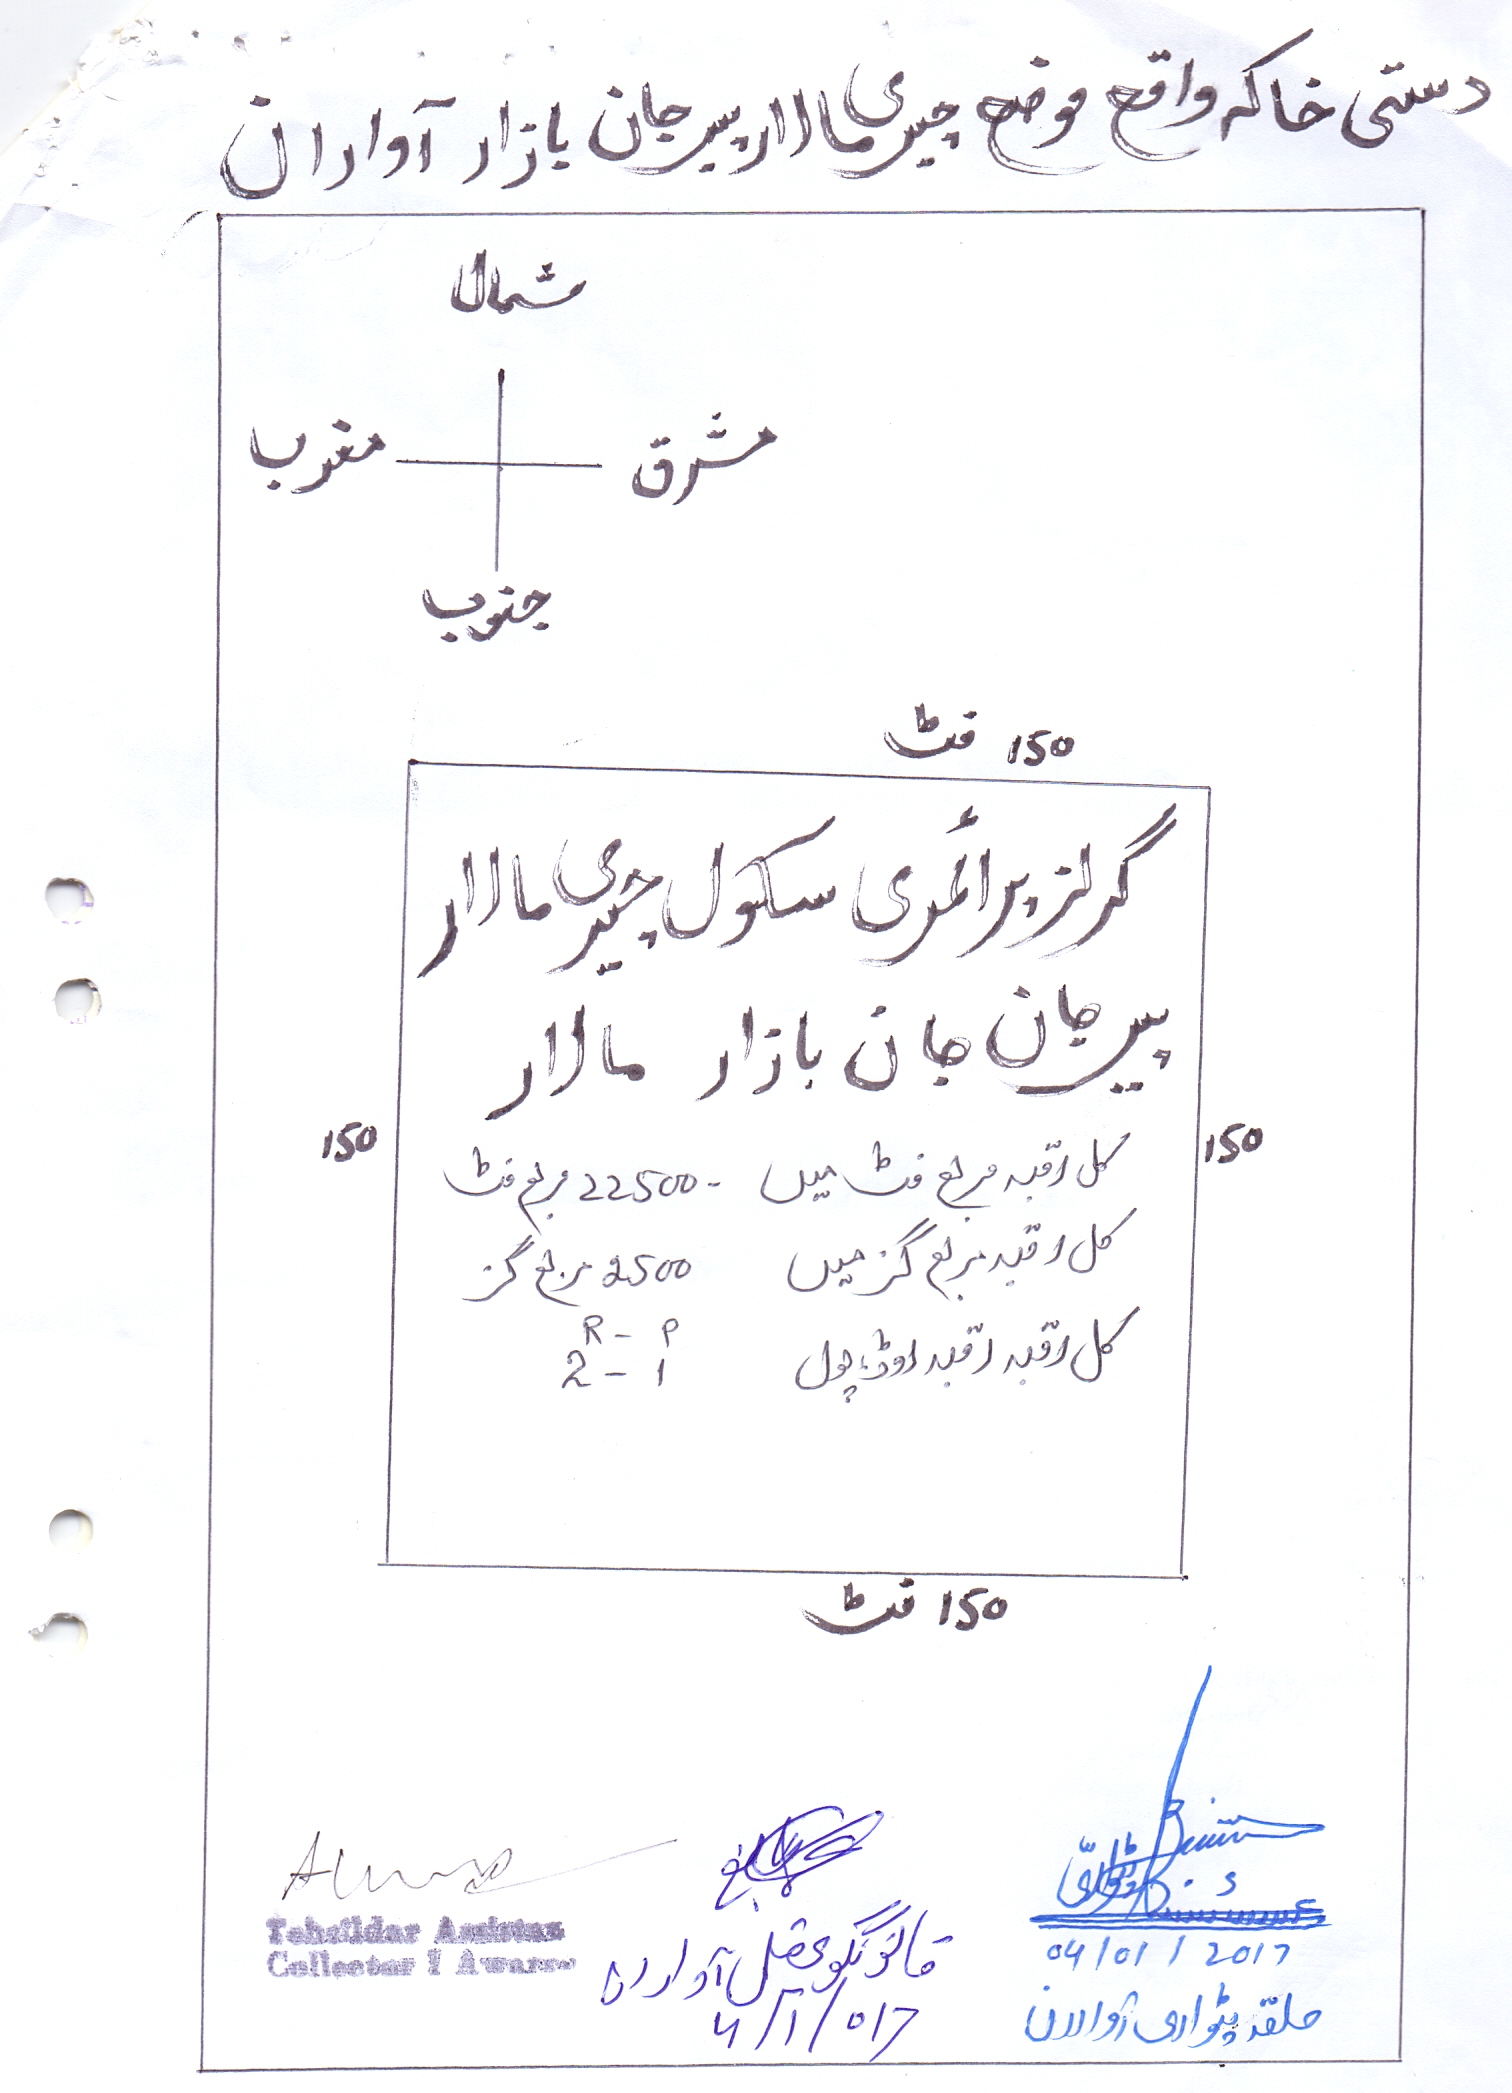 دستی خاکہ واقع موضع چیری مالار پیر جان بازار آواران
شمال
مغرب
مشرق
جنوب
150 فٹ
گرلز پرائمری سکول چیری مالار
پیر جان جان بازار مالار
150
150
کل رقبہ مربع فٹ میں - 22500 مربع فٹ
کل رقبہ مربع گز میں 2500 مربع گز
R - P
کل رقبہ رقبہ روڈ، پول 2 - 1
150 فٹ
Tehsildar Assistan
Collector I Awaran
قانونگوی آواران
4/1/017
پٹواری
04/01/2017
حلقہ پٹواری آواران